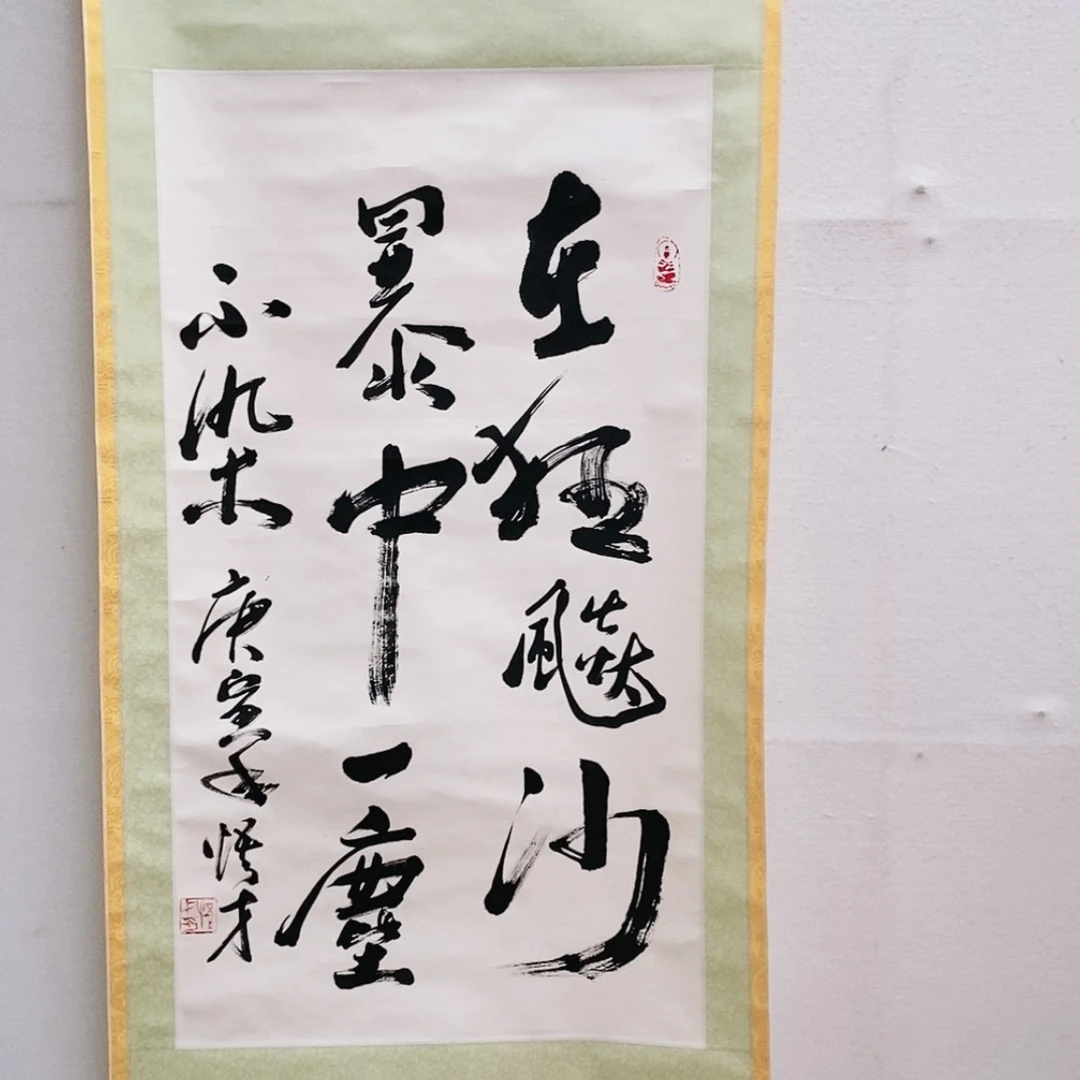 在狂飈沙
暴中一塵
不染 庚寅年 悟才